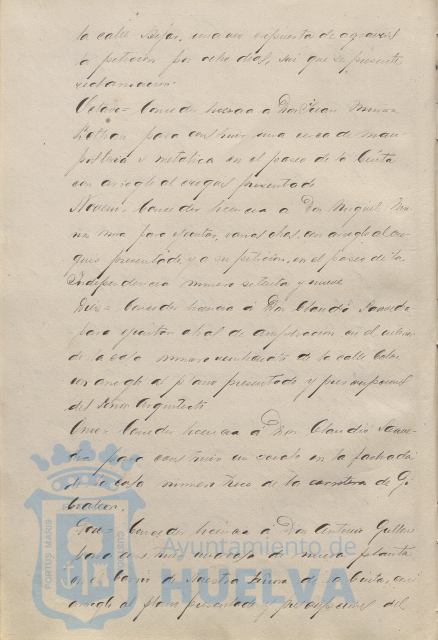 la calle Bejar, una vez expuesta de
la peticion por ocho dias, sin que se presente
reclamacion.
Octavo = Conceder licencia a Don Juan Muñoz
para construir una cerca de mam
posteria y metalica en el paseo de la Cinta
con arreglo al croquis presentado
Noveno = Conceder licencia a Don Miguel
para ejecutar varias obras, con arreglo al cro
quis presentado y a su peticion, en el paseo de la
Independencia numero setenta y nueve
Diez = Conceder licencia a Don Claudio Saavedra
para ejecutar obras de ampliacion en el
de la casa numero veinticuatro de la calle
con arreglo al plano presentado y prescripciones
del Señor Arquitecto
Once = Conceder licencia a Don Claudio Saave
dra para construir un en la fachada
de la casa numero trece de la carretera de Gi
braleon.
Doce = Conceder licencia a Don Antonio
para construir de nueva planta
en el barrio de Nuestra Señora de la Cinta, con
arreglo al plano presentado y prescripciones del
PORTUS MARIS
CUSTODIA
Ayuntamiento de
HUELVA